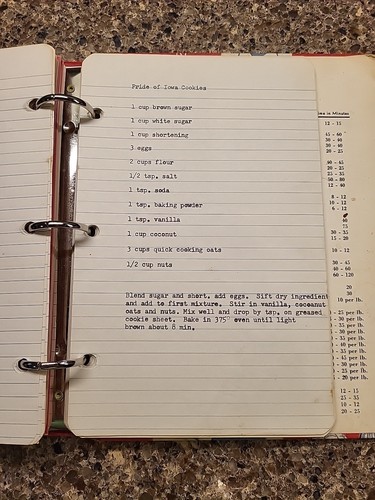 Pride of Iowa Cookies
1 cup brown sugar
1 cup white sugar
1 cup shortening
3 eggs
2 cups flour
1/2 tsp. salt
1 tsp. soda
1 tsp. baking powder
1 tsp. vanilla
1 cup coconut
3 cups quick cooking oats
1/2 cup nuts
Blend sugar and short. add eggs. Sift dry ingredient
and add to first mixture. Stir in vanilla, cocoanut
oats and nuts. Mix well and drop by tsp. on greased
cookie sheet. Bake in 375° oven until light
brown about 8 min.
in Minutes
12 - 15
45 - 60
30 - 40
20 - 40
20 - 25
40 - 45
20 - 25
25 - 35
50 - 80
12 - 40
8 - 12
10 - 12
6 - 12
40
75
30 - 35
15 - 20
10 - 12
30 - 45
40 - 60
60 - 120
20
30
10 per lb.
- 25 per lb.
- 30 per lb.
- 35 per lb.
- 30 per lb.
- 35 per lb.
- 40 per lb.
- 35 per lb.
- 45 per lb.
- 35 per lb.
- 25 per lb.
- 20 per lb.
12 - 15
25 - 35
10 - 12
20 - 25